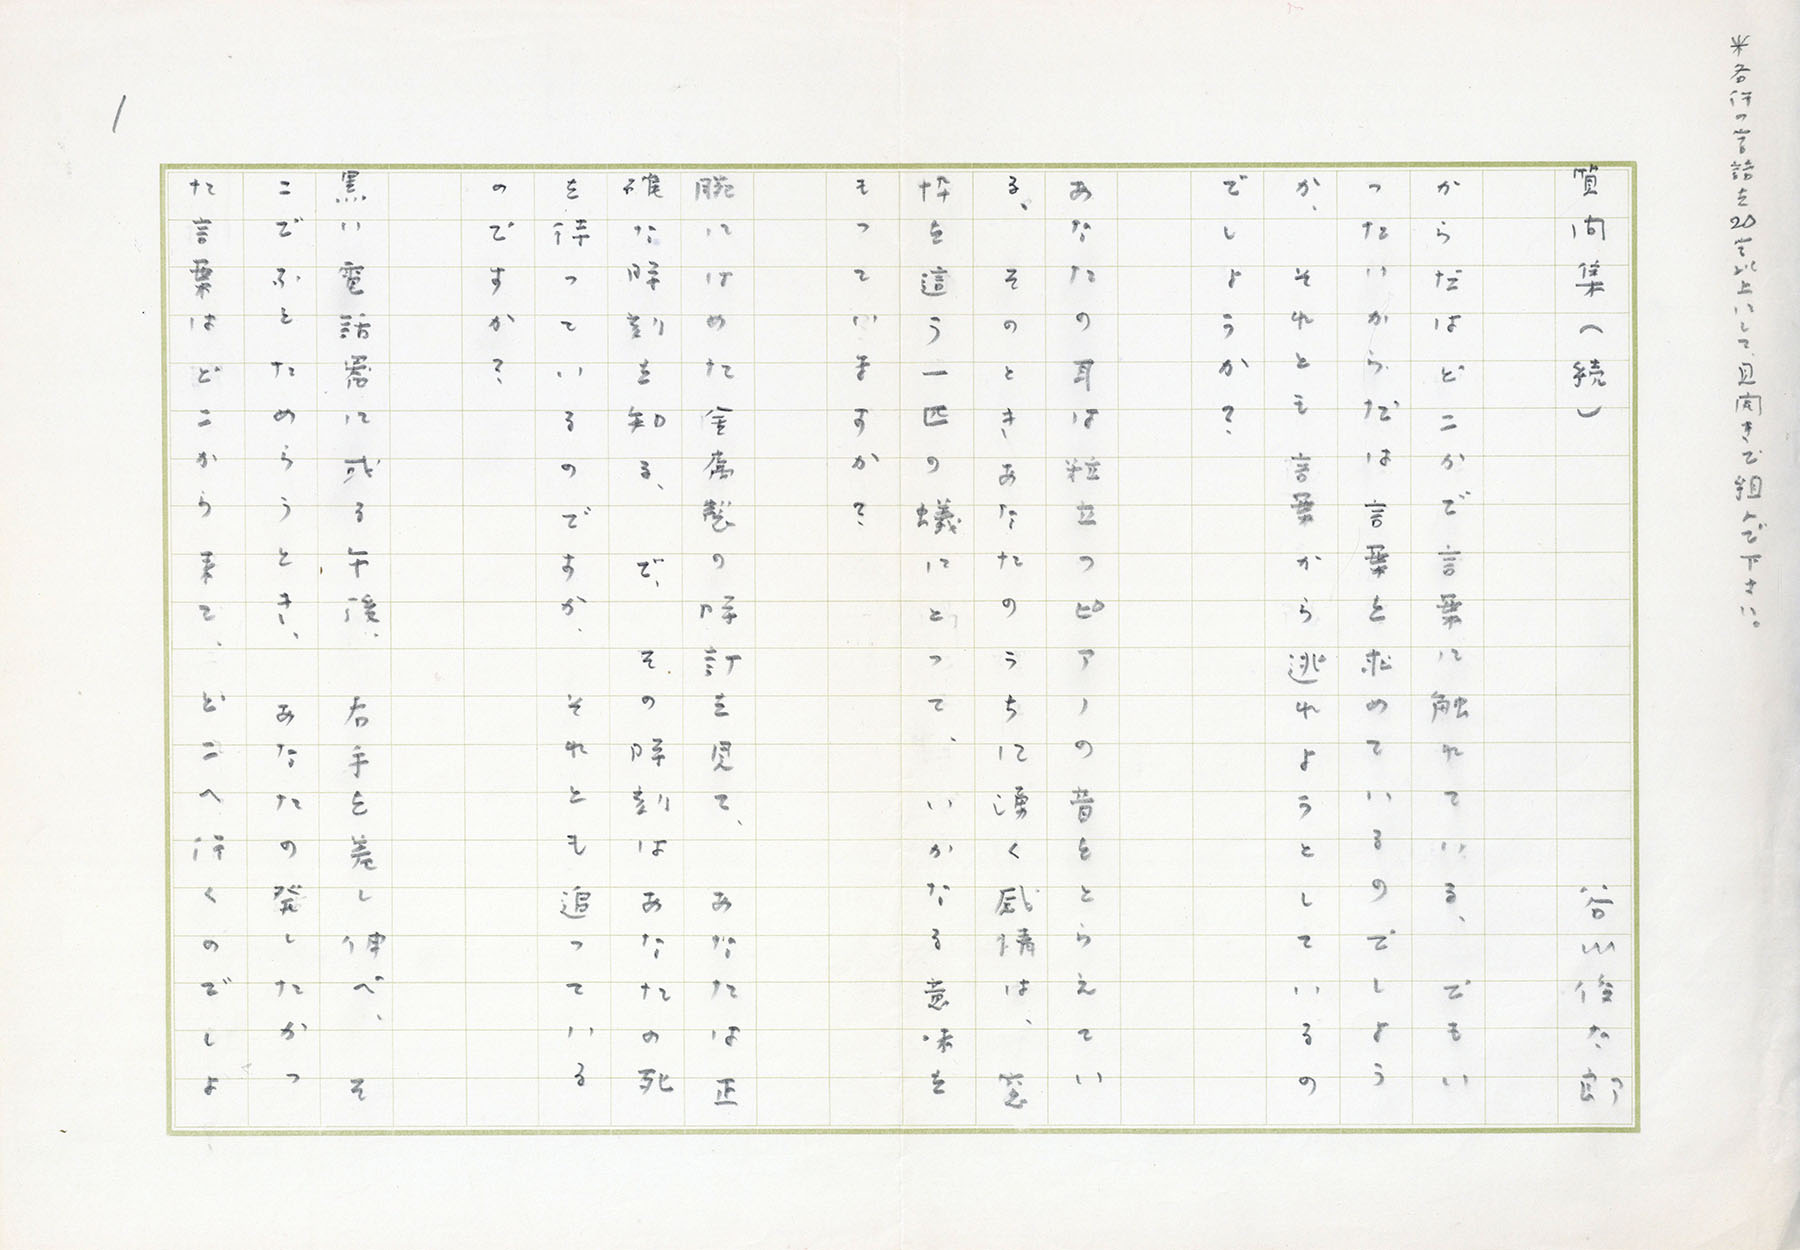 ※各行の言語を20字以上にして、見開きで組んで下さい。
質問集（続） 谷川俊太郎
からだはどこかで言葉に触れている、でもい
ったいからだは言葉を求めているのでしょう
か、それとも言葉から逃れようとしているの
でしょうか？
あなたの耳は粒立つピアノの音をとらえてい
る、そのときあなたのうちに湧く感情は、窓
枠を這う一匹の蟻にとって、いかなる意味を
もっていますか？
腕にはめた金属製の時計を見て、あなたは正
確な時刻を知る、で、その時刻はあなたの死
を待っているのですか、それとも追っている
のですか？
黒い電話器に或る午後、右手を差し伸べ、そ
こでふとためらうとき、あなたの発したかっ
た言葉はどこから来て、どこへ行くのでしょ
1